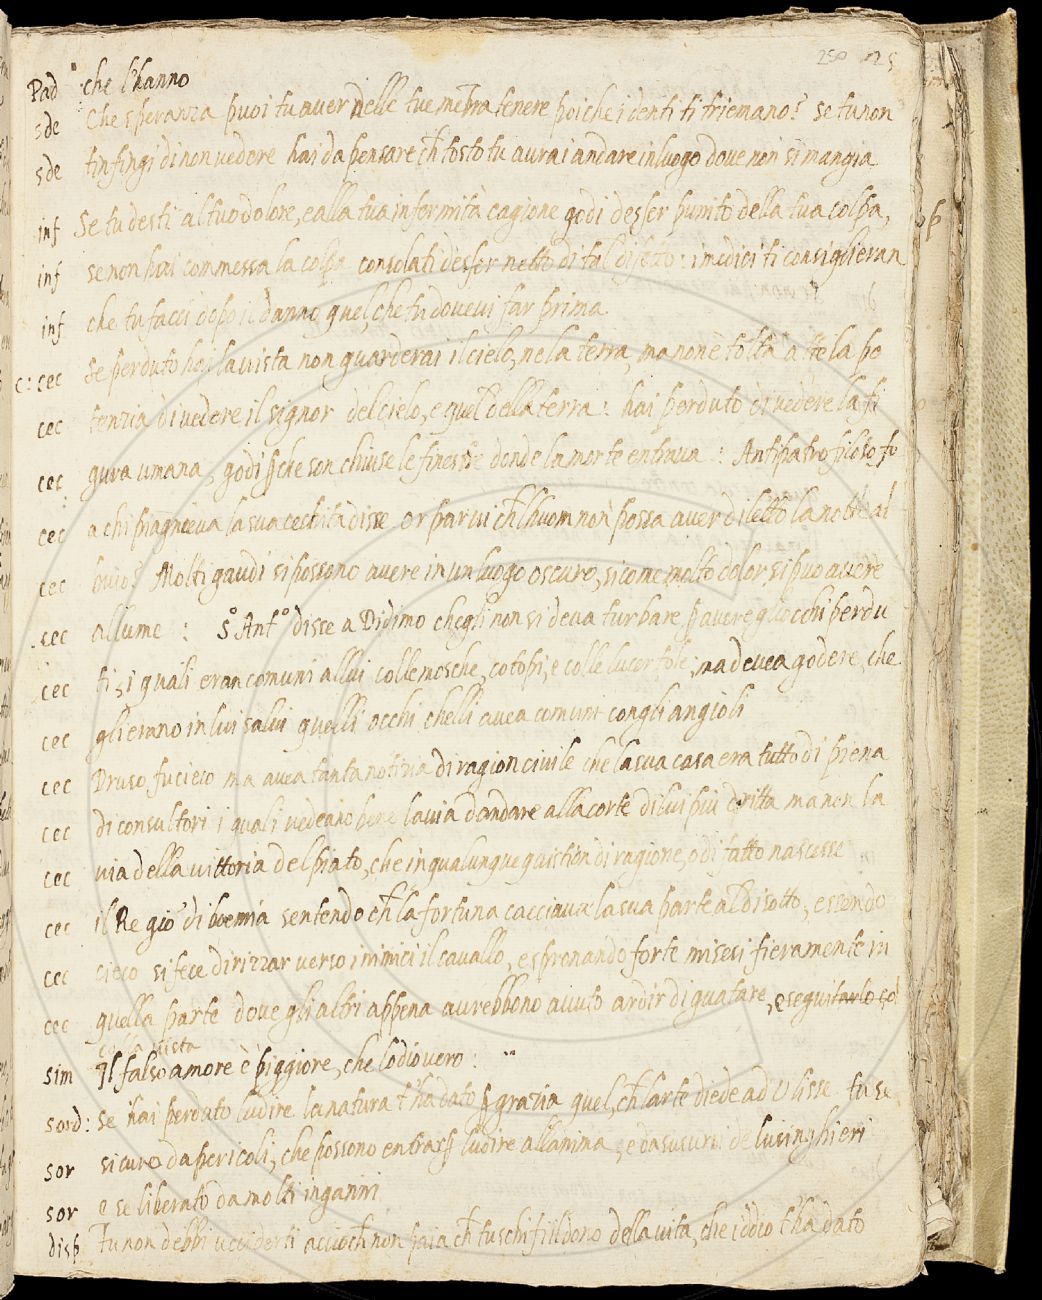 250 125
Pad che l'hanno
sde Che speranza puoi tu aver delle tue membra tenere poiche i denti ti triemano? Se tu non
sde t'infingi di non vedere hai da pensare ch̃ tosto tu avrai andare in luogo dove non si mangia
inf Se tu desti al tuo dolore, e alla tua infermità cagione godi desser punito della tua colpa,
inf se non hai commessa la colpa consolati desser netto di tal difetto: i medici ti consiglieran
inf che tu facci dopo il danno quel, che tu dovevi far prima
c: cec Se perduto hai la vista non guarderai il cielo, ne la terra, ma non è tolta a tte la po
cec tenzia di vedere il signor del cielo, e quel della terra: hai perduto di vedere la fi
cec gura umana, godi ꝑche son chiuse le finestre donde la morte entrava: Antipatro filosofo
cec a chi piagneva la sua cechità disse or par vi ch̃ lhuom non possa aver diletto la notte al
cec buio? Molti gaudi si possono avere in un luogo oscuro, sicome molto dolor si può avere
cec allume: S.º Ant.º disse a Didimo chegli non si deva turbare ꝑ avere gliocchi perdu
cec ti, i quali eran comuni allui colle mosche, co topi, e colle lucertole; ma devea godere, che
cec gli erano in lui salvi quelli occhi chelli avea comuni cogli angioli
cec Druso fu cieco ma avea tanta notizia di ragion civile che la sua casa era tutto di piena
cec di consultori i quali vedeano bene la via dandare alla corte di lui più dritta ma non la
cec via della vittoria del piato, che in qualunque quistion di ragione, o di fatto nascesse
cec il Re gio' di boemia sentendo ch̃ la fortuna cacciava la sua parte al disotto, essendo
cec cieco si fece dirizzar verso i nimici il cavallo, e spronando forte misesi fieramente in
cec quella parte dove gli altri appena avrebbono avuto ardir di guatare, e seguitarlo col
colla vista
sim Il falso amore è piggiore, che lodio vero:
sord: se hai perduto ludire la natura t'ha dato ꝑ grazia quel, ch̃ larte diede ad Ulisse tu se
sor sicuro da pericoli, che possono entrar ꝑ ludire allanima, e da susurri de lusinghieri
sor e se liberato da molti inganni
disp Tu non debbi ucciderti acciò ch̃ non paia ch̃ tu schifi il dono della vita, che iddio t'ha dato